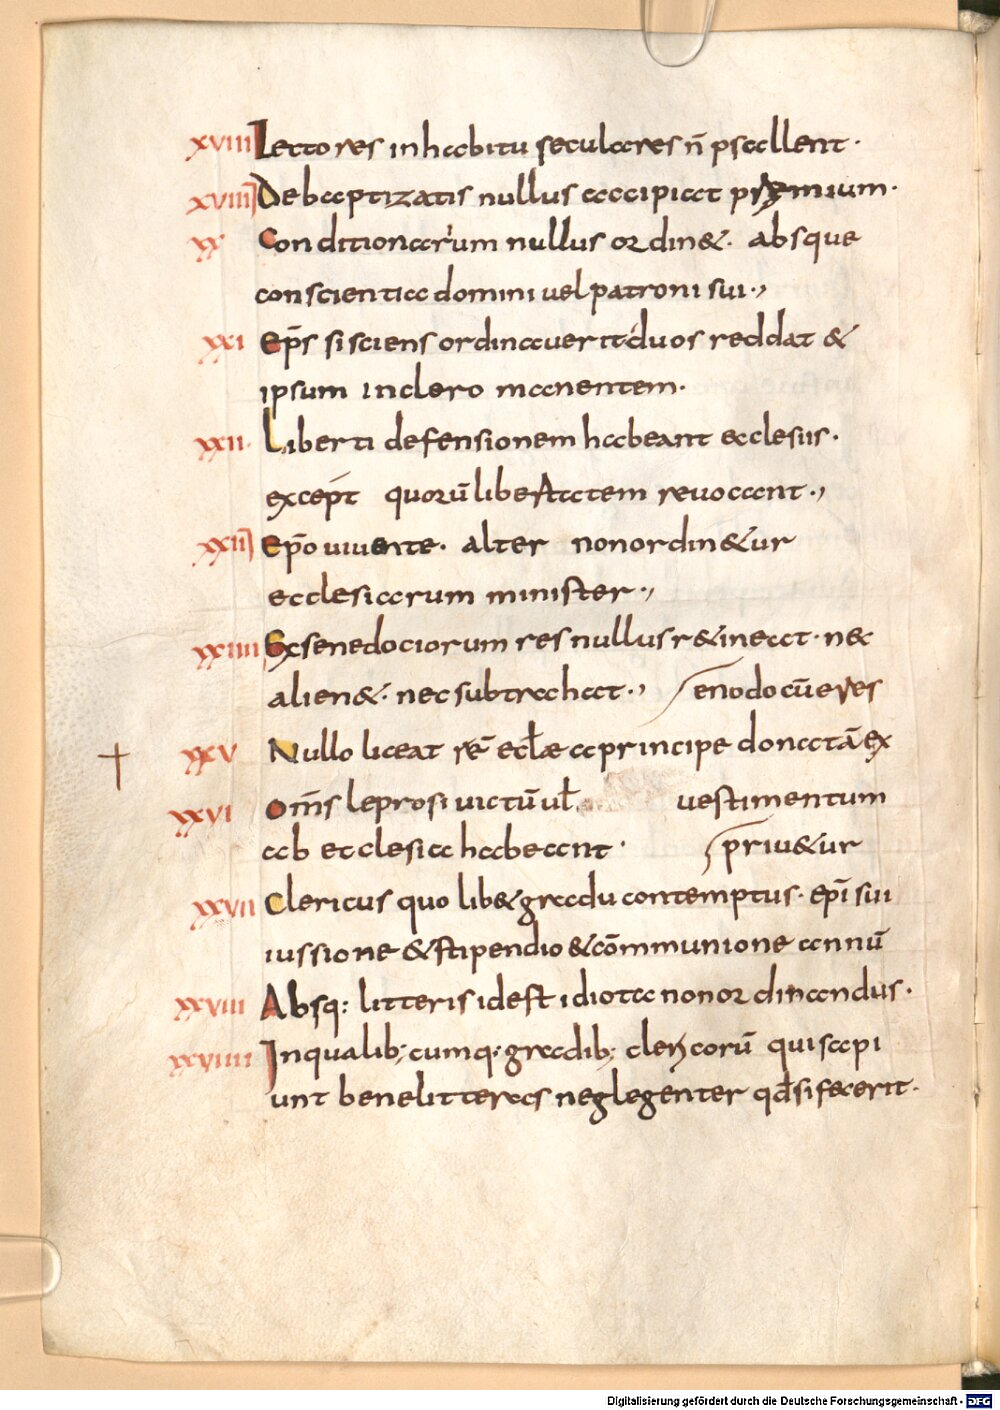 xviii Lectores in habitu seculares n̄ psallent·
xviiii De baptizatis nullus accipiat prỿmium·
xx Conditionarum nullus ordin&· absque
conscientia domini uel patroni sui·,
xxi Ep̄s si sciens ordinauerit duos reddat &
ipsum in clero manentem·
xxii· Liberti defensionem habeant ecclesiis·
except quorū libertatem reuocant·,
xxiii Ep̄o uiuente· alter non ordin&ur
ecclesiarum minister·,
xxiiii Exsenedociorum res nullus r&ineat· nec
alien&· nec subtrahat·, enodocū eres
xxv Nullo liceat rē eccl̄æ a principe donatā ex
xxvi Om̄s leprosi uictū ul̄ uestimentum
ab ecclesia habeant· priu&ur
xxvii Clericus quo lib& gradu contemptus· ep̄i sui
iussione & stipendio & cōmmunione annū
xxviii Absq: litteris id est idiota non ordinandus·
xxviiii In qualib; cumq: gradib; clericorū qui sapi
unt bene litteras neglegenter qd̄ si fecerit·
Digitalisierung gefördert durch die Deutsche Forschungsgemeinschaft - DFG